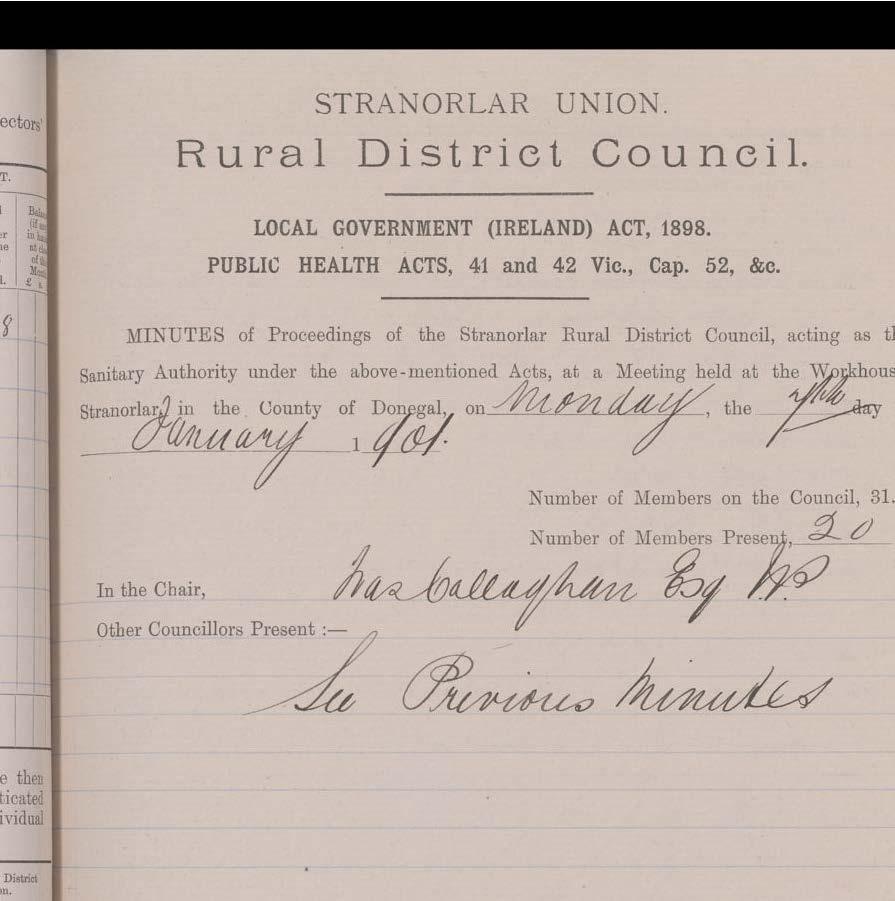 ectors'
T.
Bala
(if an
in han
at clo
of th
Mont
£ s.
8
e then
ticated
ividual
District
on.
STRANORLAR UNION.
Rural District Council.
LOCAL GOVERNMENT (IRELAND) ACT, 1898.
PUBLIC HEALTH ACTS, 41 and 42 Vic., Cap. 52, &c.
MINUTES of Proceedings of the Stranorlar Rural District Council, acting as th
Sanitary Authority under the above-mentioned Acts, at a Meeting held at the Workhous
Stranorlar, in the County of Donegal, on Monday, the 7th day
January 1901.
Number of Members on the Council, 31.
Number of Members Present, 20
In the Chair, Callaghan Esq J.P
Other Councillors Present :—
See Previous Minutes